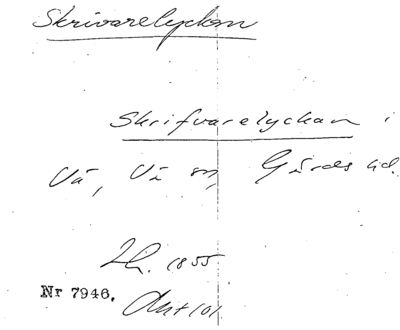 Skrivarelyckan
Skrifvarelyckan i
Vä, Vä sn, Gärds hd.
Lh. 1855
Nr 7946. Akt 101